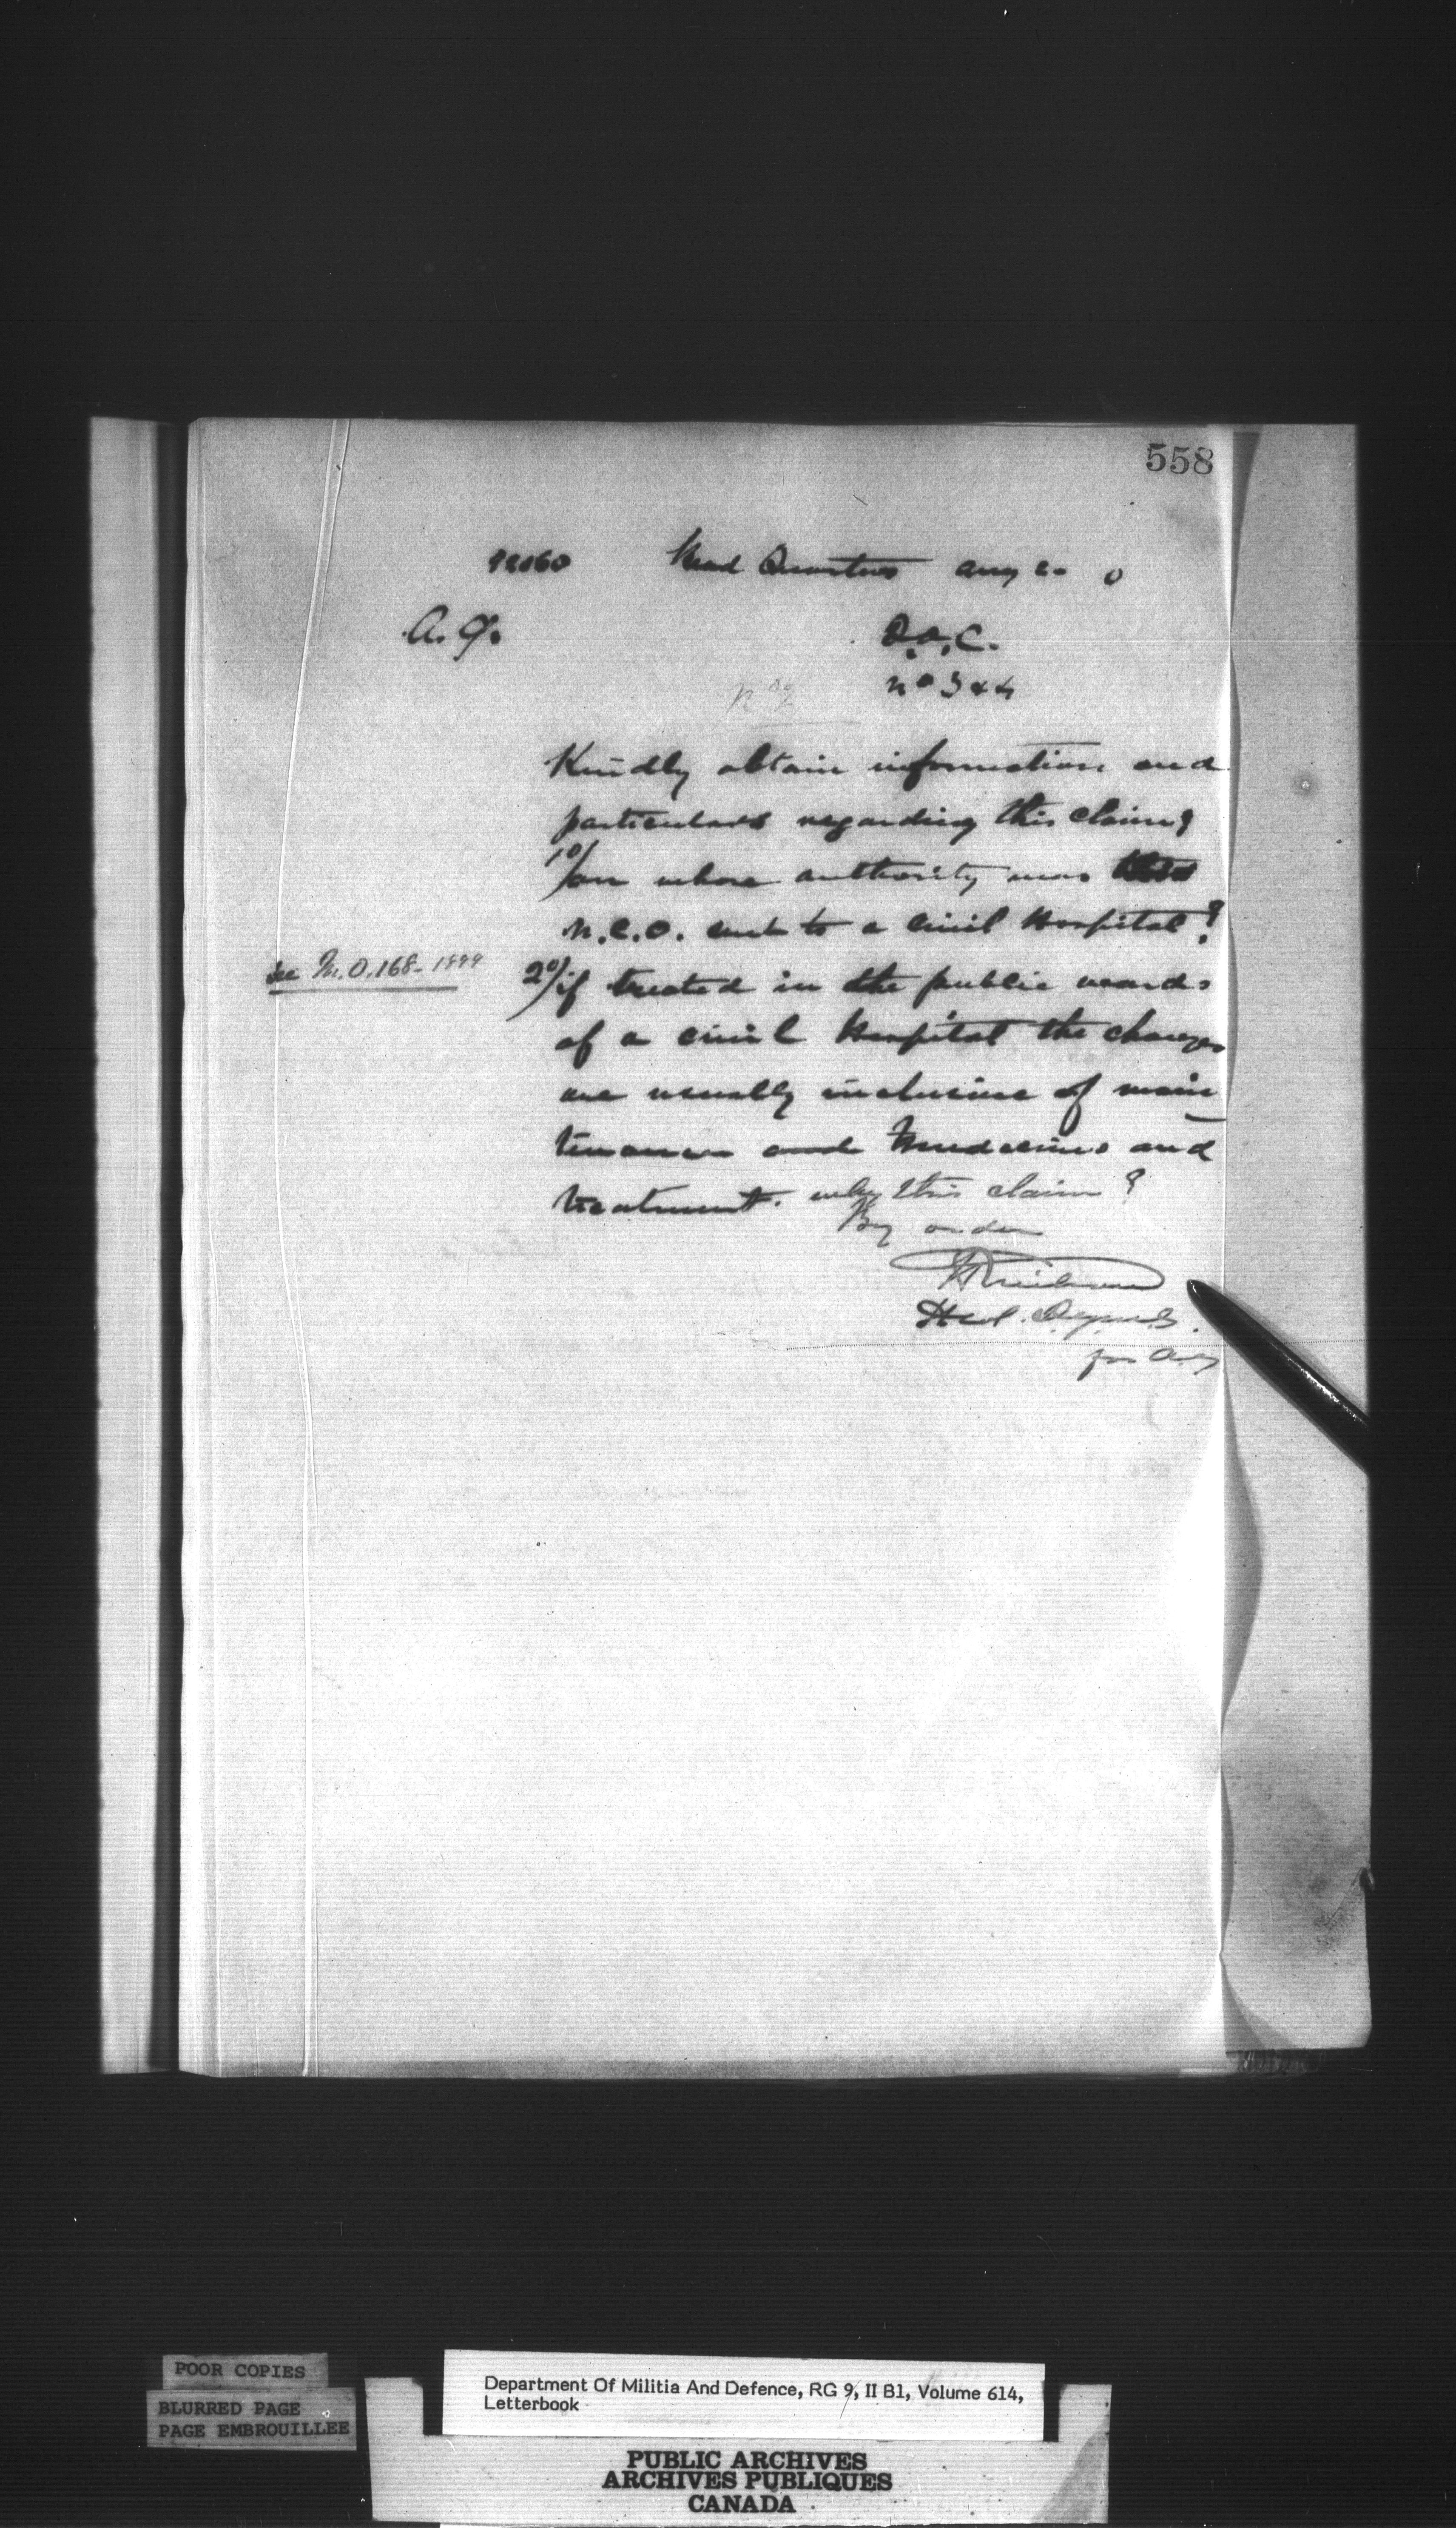 558
Head Quarters Aug
A. G.
D.O.C.
No 3 & 4
No 2
Kindly obtain information and
particulars regarding this claim?
1o/ on whose authority was this
N.C.O. sent to a Civil Hospital?
see M.O. 168-1899
2o/ if treated in the public wards
of a civil Hospital the charges
are usually inclusive of main
tenance and Medecines and
treatment. why this claim?
By order
Lt Col.
for A.G
POOR COPIES
BLURRED PAGE
PAGE EMBROUILLEE
Department Of Militia And Defence, RG 9, II B1, Volume 614,
Letterbook
PUBLIC ARCHIVES
ARCHIVES PUBLIQUES
CANADA